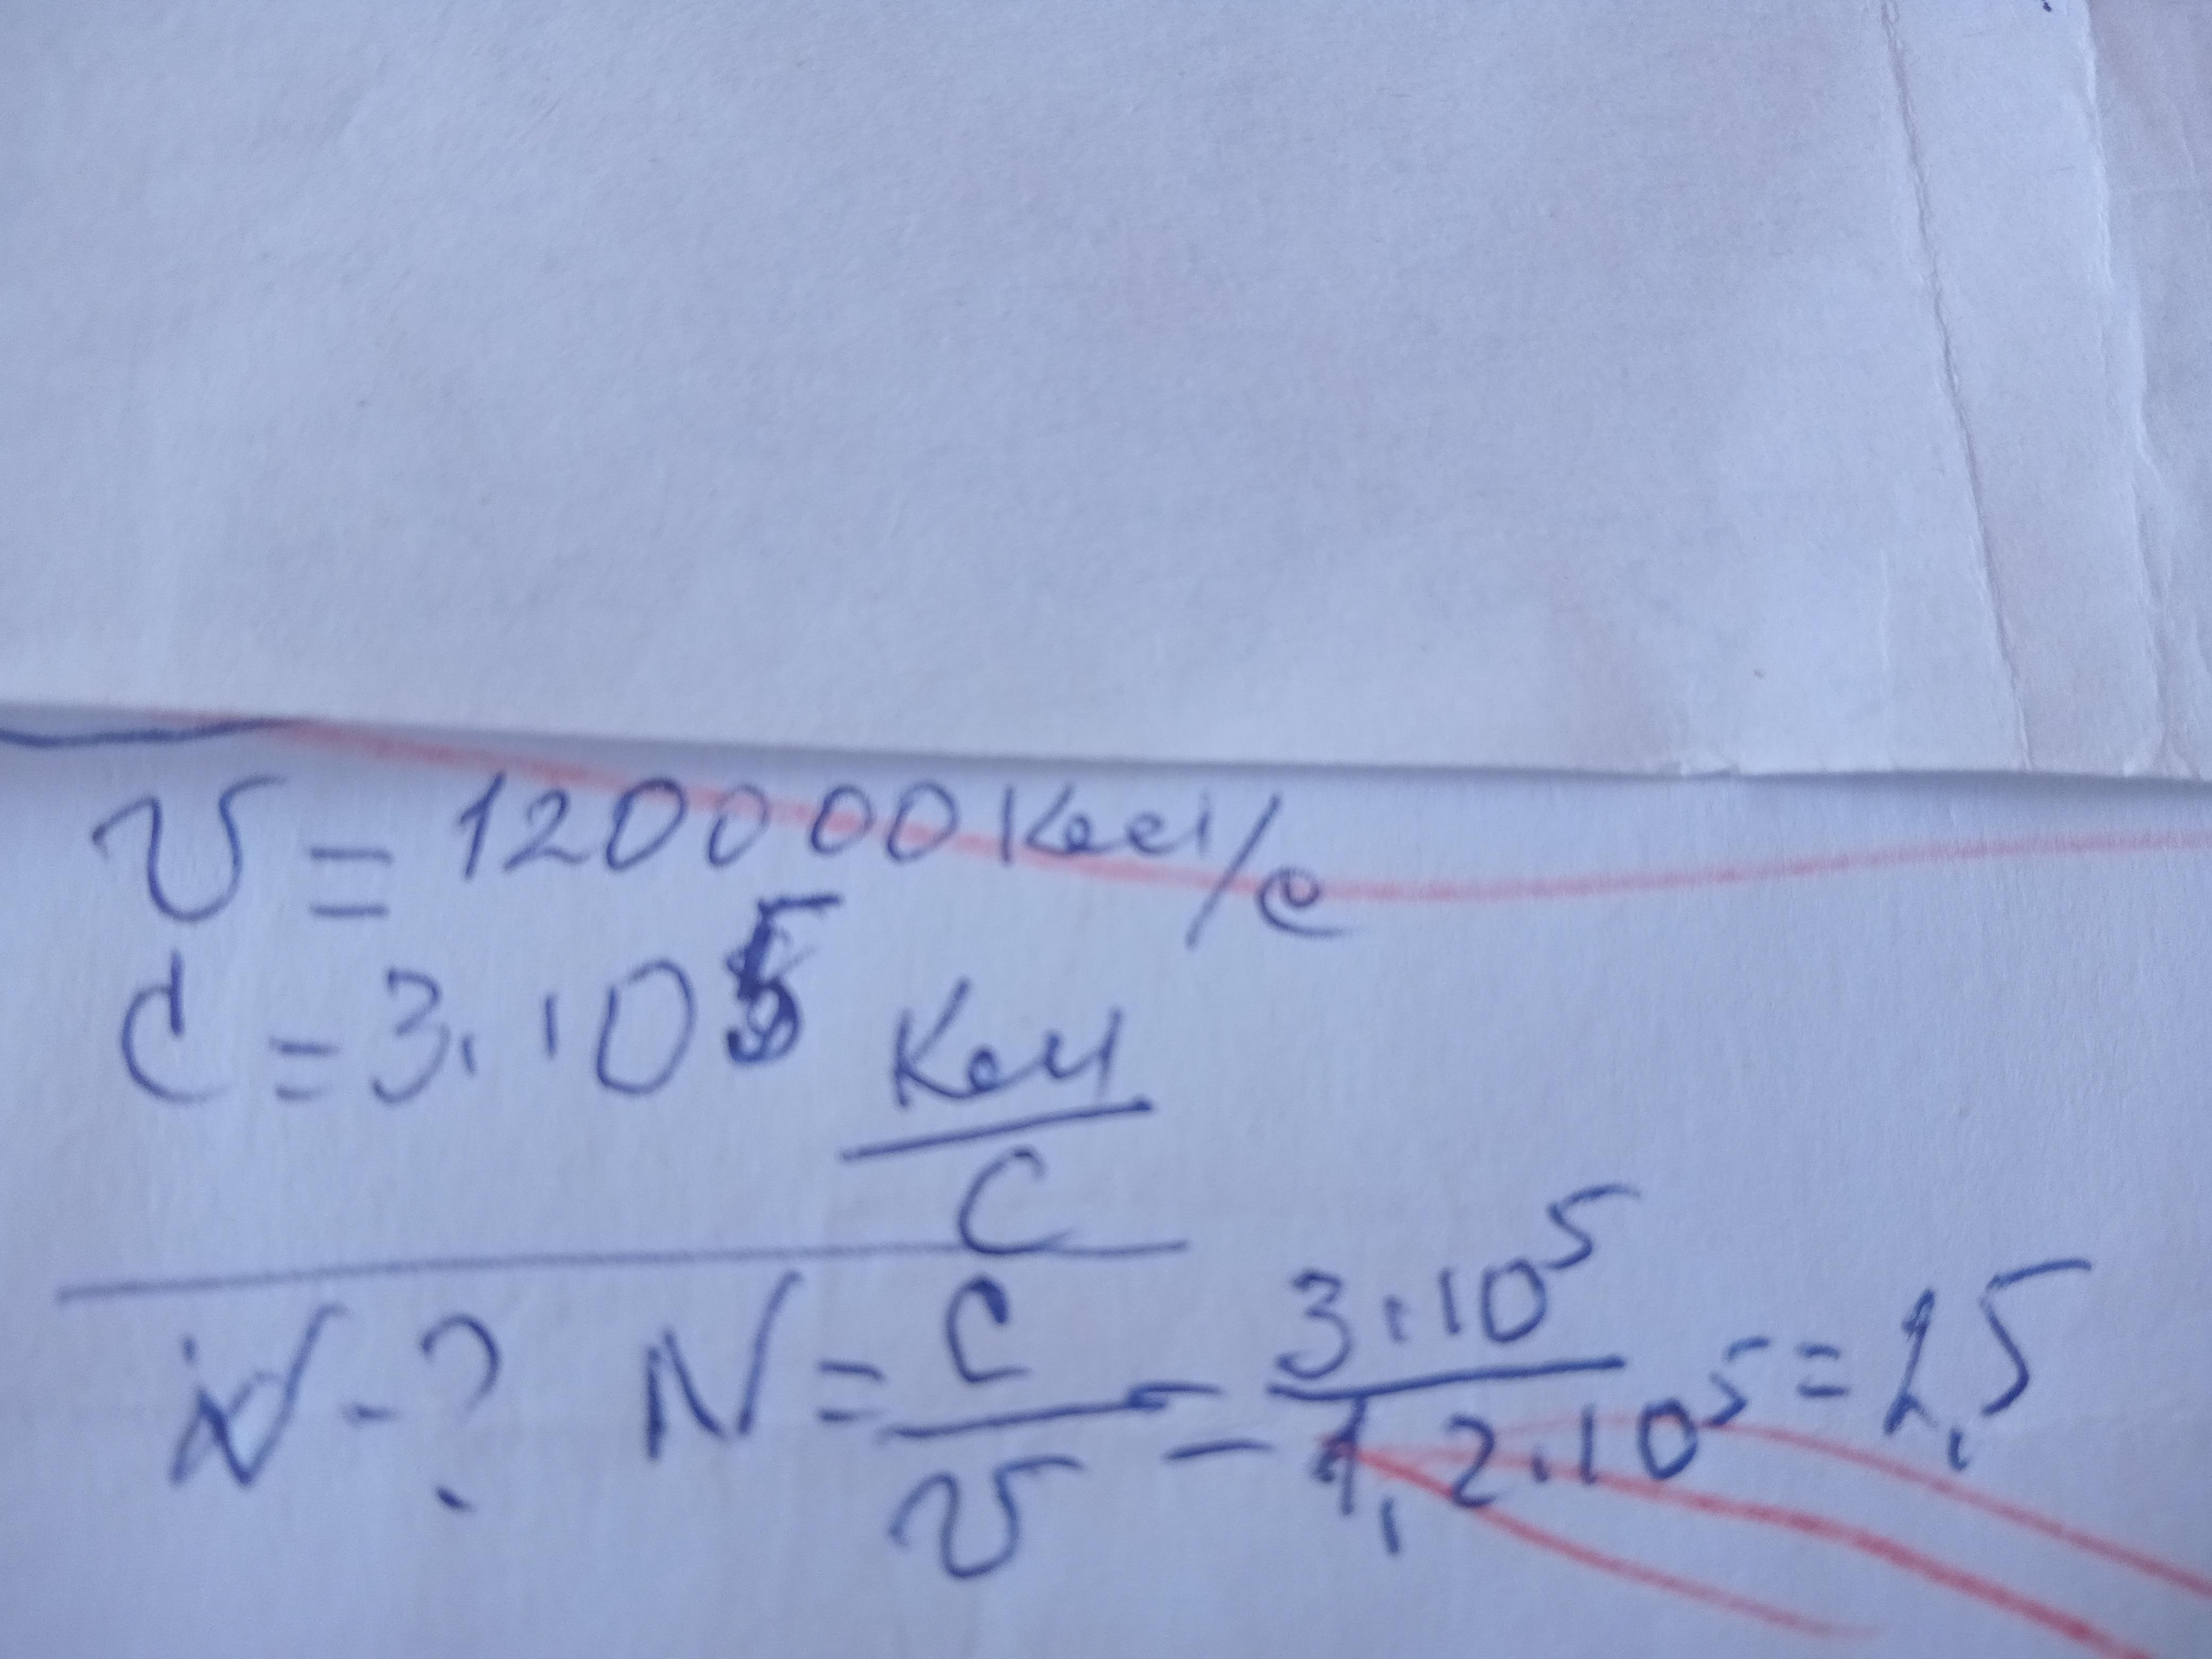 υ = 120000 км/с
c = 3 · 10⁵ км/с
N - ? N = c/υ = 3·10⁵/1,2·10⁵ = 2,5